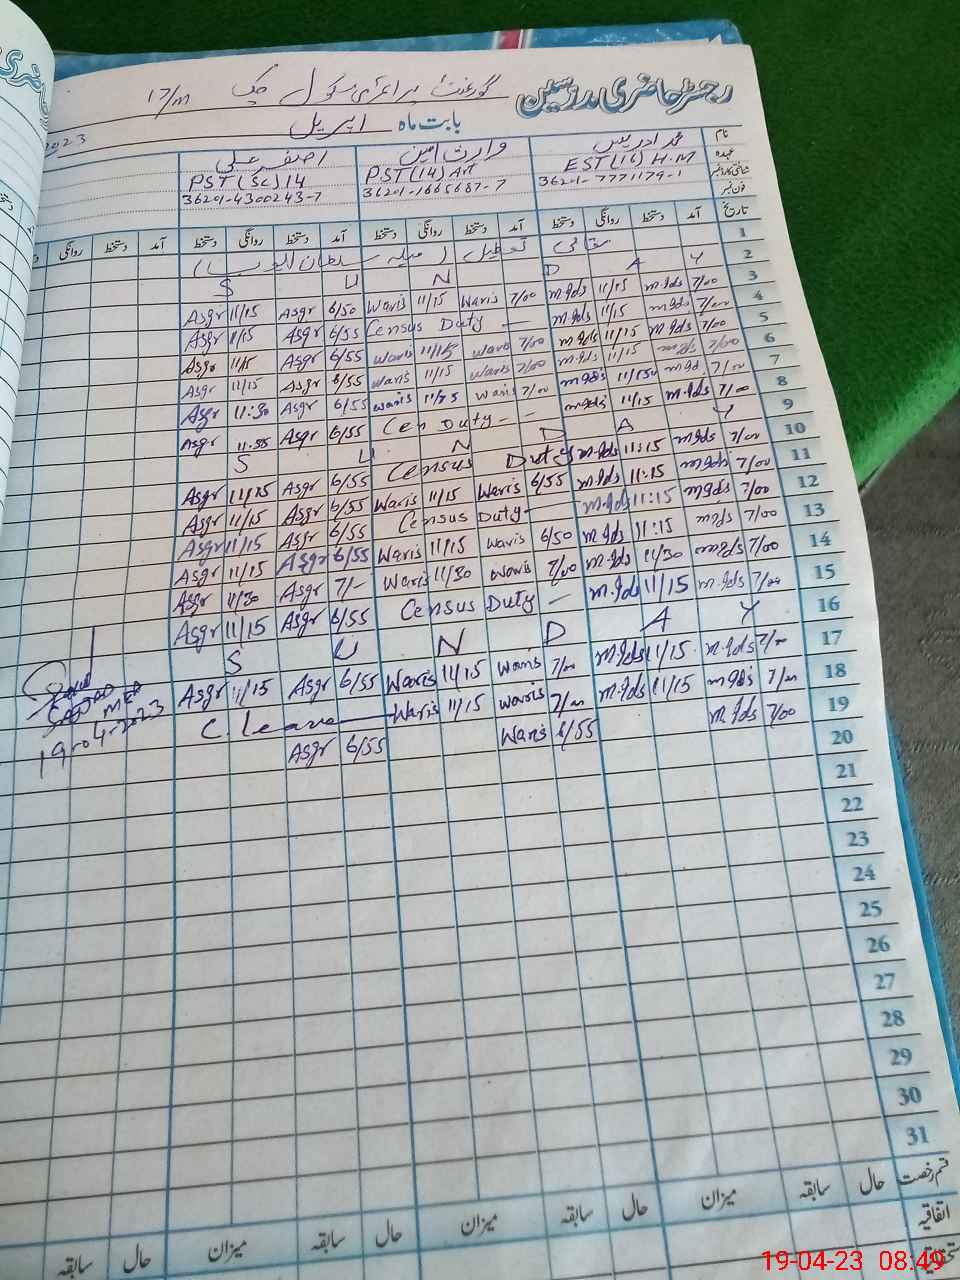 رجسٹر حاضری مدرسین گورنمنٹ پرائمری سکول چک 17/M
بابت ماہ اپریل 2023
نام محمد ادریس وارث امین اصغر علی
عہدہ EST(16) H.M PST(14) Art PST(SC)14
شناختی کارڈ نمبر 36201-7771179-1 36201-1665687-7 36201-4300243-7
فون نمبر
تاریخ آمد دستخط روانگی دستخط آمد دستخط روانگی دستخط آمد دستخط روانگی دستخط آمد دستخط روانگی
1 مقامی تعطیل (میلہ سلطان ایوب)
2 S U N D A Y
3 Asgr 11/15 Asgr 6/50 Waris 11/15 Waris 7/00 m.Ids 11/15 m.Ids 7/00
4 Asgr 11/15 Asgr 6/55 Census Duty — m.Ids 11/15 m.Ids 7/00
5 Asgr 11/15 Asgr 6/55 Waris 11/15 Waris 7/00 m.Ids 11/15 m.Ids 7/00
6 Asgr 11/15 Asgr 6/55 Waris 11/15 Waris 7/00 m.Ids 11/15 m.Ids 7/00
7 Asgr 11:30 Asgr 6/55 Waris 11/45 Waris 7/00 m.Ids 11/15 m.Ids 7/00
8 Asgr 11:55 Asgr 6/55 Cen Duty - — m.Ids 11/15 m.Ids 7/00
9 S U N D A Y
10 Asgr 11/15 Asgr 6/55 Census Duty m.Ids 11:15 m.Ids 7/00
11 Asgr 11/15 Asgr 6/55 Waris 11/15 Waris 6/55 m.Ids 11:15 m.Ids 7/00
12 Asgr 11/15 Asgr 6/55 Census Duty - m.Ids 11:15 m.Ids 7/00
13 Asgr 11/15 Asgr 6/55 Waris 11/15 Waris 6/50 m.Ids 11:15 m.Ids 7/00
14 Asgr 11/30 Asgr 7/- Waris 11/30 Waris 7/00 m.Ids 11/30 m.Ids 7/00
15 Asgr 11/15 Asgr 6/55 Census Duty — m.Ids 11/15 m.Ids 7/00
16 S U N D A Y
17 Asgr 11/15 Asgr 6/55 Waris 11/15 Waris 7/00 m.Ids 11/15 m.Ids 7/00
18 C. Leave — Waris 11/15 Waris 7/00 m.Ids 11/15 m.Ids 7/00
19 Asgr 6/55 Waris 6/55 m.Ids 7/00
19-04-2023
20
21
22
23
24
25
26
27
28
29
30
31
قسم رخصت حال سابقہ میزان حال سابقہ میزان حال سابقہ میزان حال سابقہ
اتفاقیہ
19-04-23 08:49